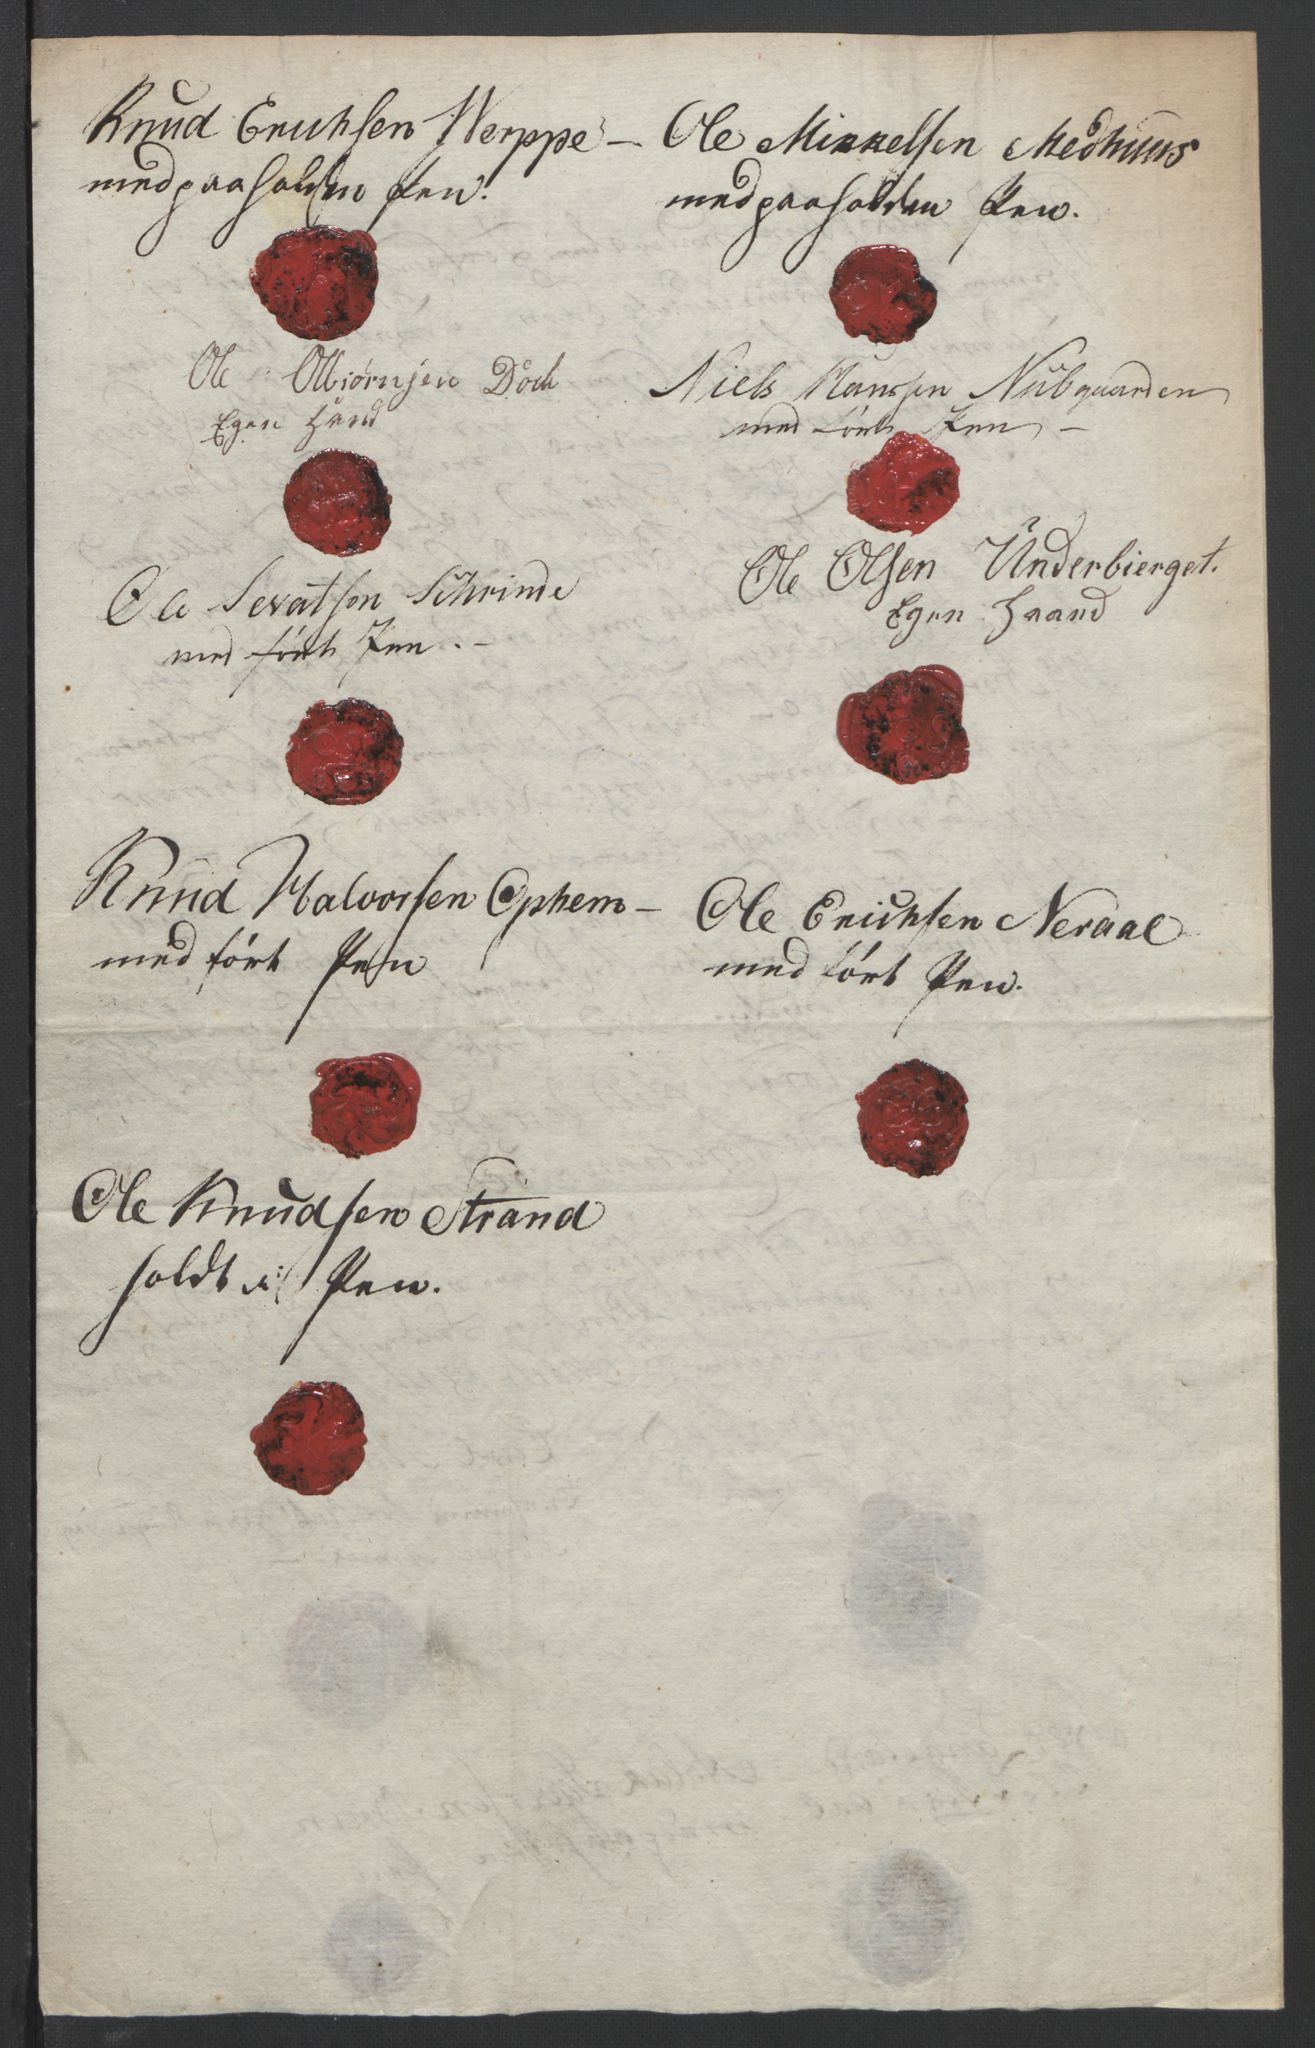 Knud Erichsen Werppe –
med paaholden Pen.
Ole Mikkelsen Medhuus
med paaholden Pen.
Ole Olbiørnsen
Egen Haand
Niels Hanssen
med ført Pen –
Ole Sevatsøn Schrinde
med ført Pen. –
Ole Olsen Underbierget.
Egen Haand
Knud Halvorsen Ophem –
med ført Pen
Ole Erichsen Neraal
med ført Pen.
Ole Knudsen Strand
holdt i Pen.